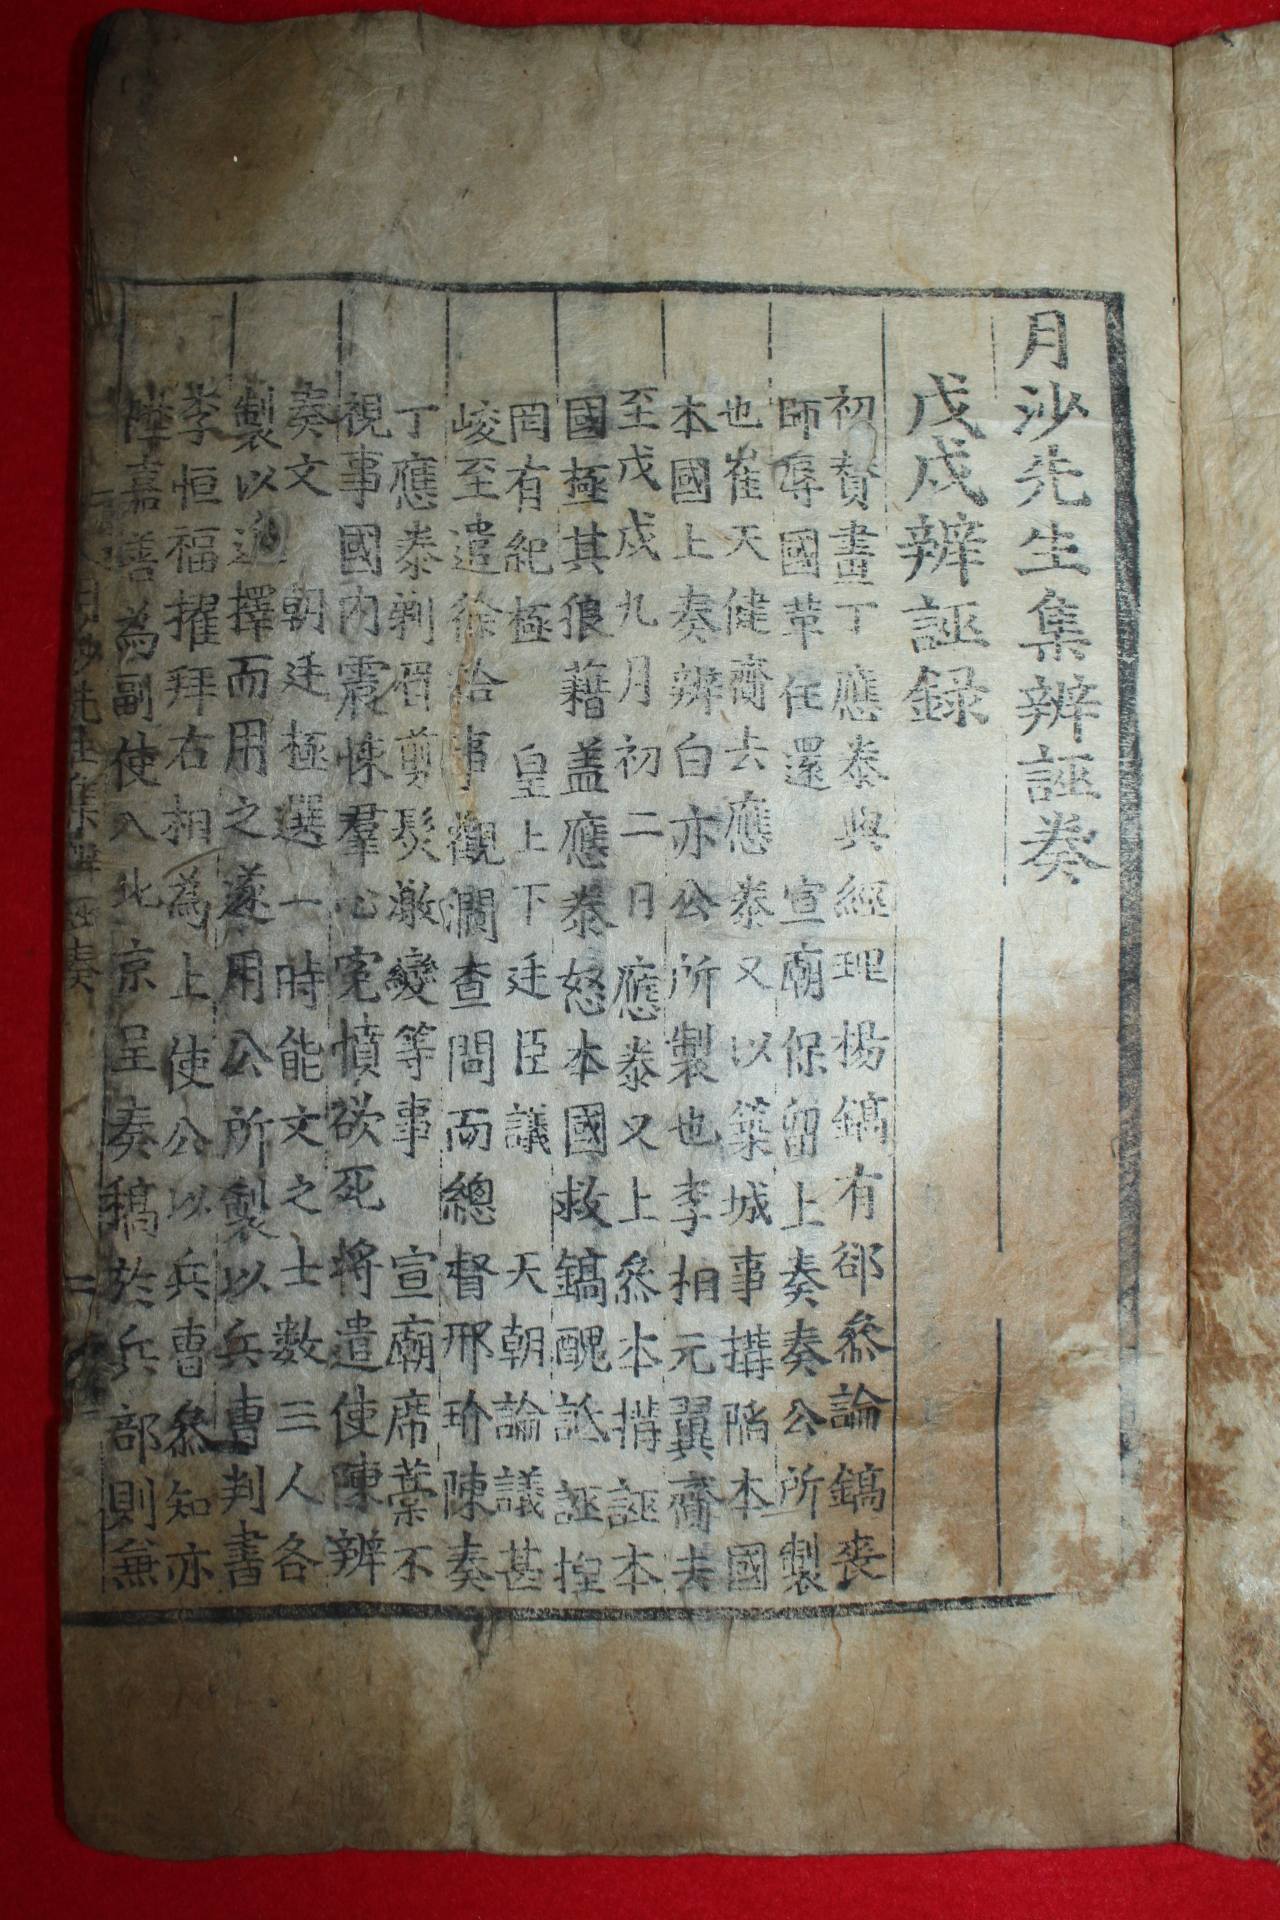 月沙先生集辨誣奏
戊戌辨誣録
初贊畫丁應泰與經理楊鎬有郤叅論鎬喪
師辱國革任還 宣廟保留上奏奏公所製
也崔天健齎去應泰又以築城事搆陷本國
本國上奏辨白亦公所製也李相元翼齎去
至戊戌九月初二日應泰又上叅本搆誣本
國極其狼藉盖應泰怒本國救鎬醜詆誣捏
罔有紀極 皇上下廷臣議 天朝論議甚
峻至遣徐給事觀瀾查問而總督邢玠陳奏
丁應泰剃眉剪髮激變等事 宣廟席藁不
視事國内震悚羣心寃憤欲死將遣使陳辨
奏文 朝廷極選一時能文之士數三人各
製以進擇而用之遂用公所製以兵曹判書
李恒福擢拜右相為上使公以兵曹叅知亦
陞嘉善為副使入北京呈奏稿於兵部則兼
月沙先生集辨誣奏